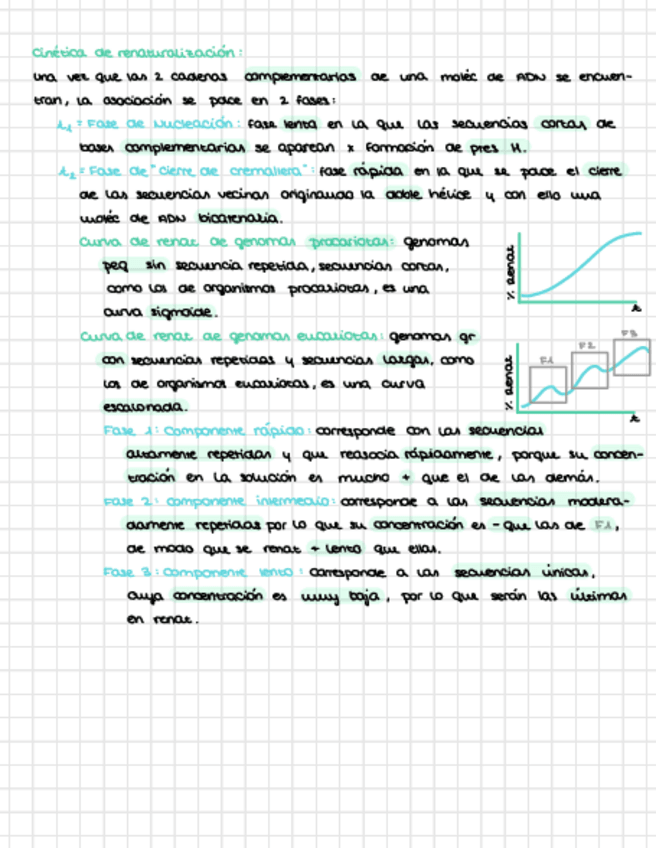 Cinética de renaturalización:
una vez que las 2 cadenas complementarias de una moléc de ADN se encuen-
tran, la asociación se pace en 2 fases:
t1 = Fase de Nucleación: fase lenta en la que las secuencias cortas de
bases complementarias se aparean x formación de pres H.
t2 = Fase de "cierre de cremallera": fase rápida en la que se pace el cierre
de las secuencias vecinas originando la doble hélice y con ello una
moléc de ADN bicatenaria.
Curva de renat de genomas procariotas: genomas
peq sin secuencia repetida, secuencias cortas,
como los de organismos procariotas, es una
curva sigmoide.
% Renat
t
Curva de renat de genomas eucariotas: genomas gr
con secuencias repetidas y secuencias largas, como
los de organismos eucariotas, es una curva
escalonada.
% Renat
F1
F2
F3
t
Fase 1: Componente rápido: corresponde con las secuencias
altamente repetidas y que reasocia rápidamente, porque su concen-
tración en la solución es mucho + que el de las demás.
Fase 2: componente intermedio: corresponde a las secuencias modera-
damente repetidas por lo que su concentración es - que las de F1,
de modo que se renat + lento que ellas.
Fase 3: componente lento: corresponde a las secuencias únicas,
cuya concentración es muy baja, por lo que serán las últimas
en renat.